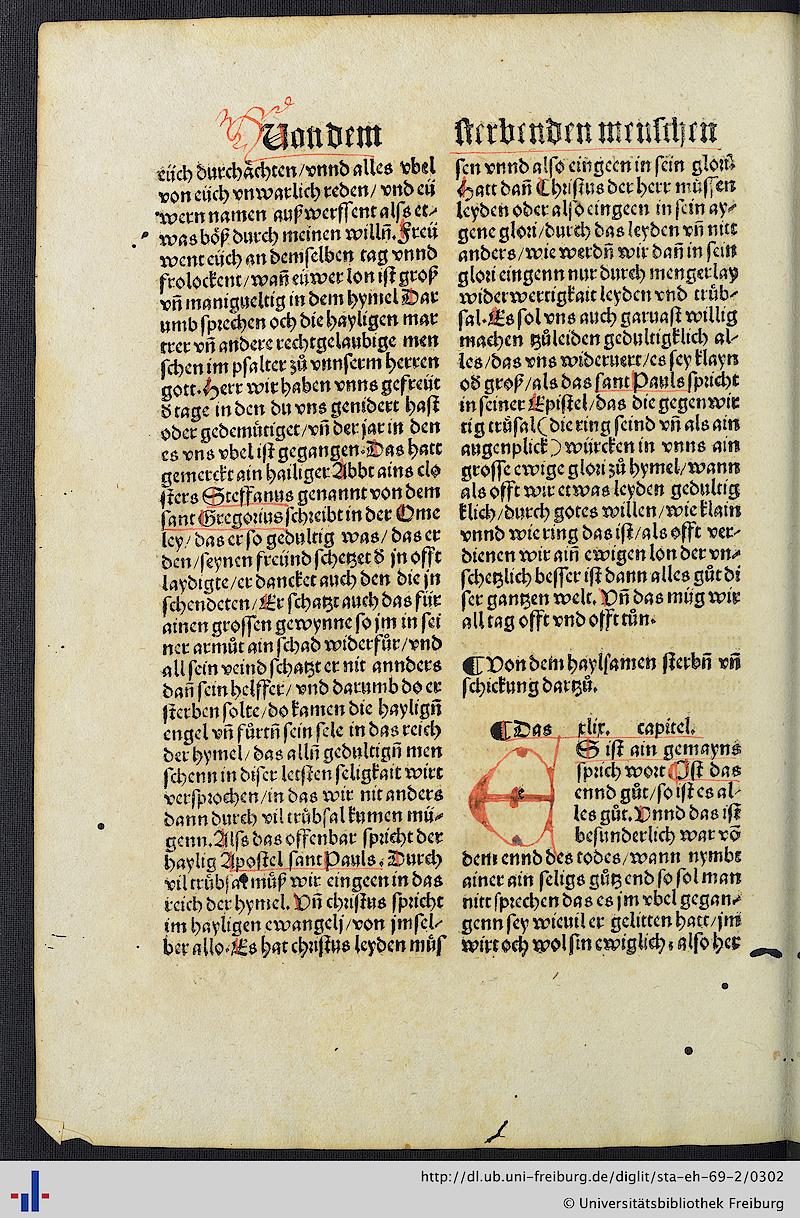 Von dem sterbenden menschen
eüch durchåchten/vnnd alles vbel
von eüch vnwarlich reden/ vnd eü
wern namen außwerffent alss et⸗
was böß durch meinen willn̄. Freü
went eüch an demselben tag vnnd
frolockent/wan̄ eüwer lon ist groß
vn̄ manigueltig in dem hymel Dar
umb sprechen och die hayligen mar
trer vn̄ andere rechtgelaubige men
schen im psalter zů vnnserm herren
gott. Herr wir haben vnns gefreüt
d̄ tage in den du vns genidert hast
oder gedemütiget/vn̄ der jar in den
es vns vbel ist gegangen. Das hatt
gemerckt ain hailiger Abbt ains clo
sters Steffanus genannt von dem
sant Gregorius schreibt in der Ome
ley/das er so gedultig was/das er
den/seynen freünd schetzet d̄ jn offt
laydigte/er dancket auch den die jn
schendeten/Er schatzt auch das für
ainen grossen gewynne so jm in sei
ner armůt ain schad widerfůr/vnd
all sein veind schatzt er nit annders
dan̄ sein helffer/ vnd darumb do er
sterben solte/do kamen die haylign̄
engel vn̄ fůrtn̄ sein sele in das reich
der hymel/das alln̄ gedultign̄ men
schenn in diser letsten seligkait wirt
versprochen/in das wir nit anders
dann durch vil trübsal kumen mü⸗
genn. Alss das offenbar spricht der
haylig Apostel sant Pauls. Durch
vil trübsal müß wir eingeen in das
reich der hymel. Vn̄ christus spricht
im hayligen ewangelj/von jm sel⸗
ber allo. Es hat christus leyden můs
sen vnnd also eingeen in sein glori.
Hatt dan̄ Christus der herr müssen
leyden oder also eingeen in sein ay⸗
gene glori/durch das leyden vn̄ nitt
anders/wie werdn̄ wir dan̄ in sein
glori eingenn nur durch mengerlay
widerwertigkait leyden vnd trüb⸗
sal. Es sol vns auch garuast willig
machen tzůleiden gedultigklich al⸗
les/das vns wideruert/es sey klayn
od̄ groß/als das sant Pauls spricht
in seiner Epistel/das die gegenwir
tig trüsal(die ring seind vn̄ als ain
augenplick)würcken in vnns ain
grosse ewige glori zů hymel/wann
als offt wir etwas leyden gedultig
klich/durch gotes willen/wie klain
vnnd wie ring das ist/als offt ver⸗
dienen wir ain̄ ewigen lon der vn⸗
schetzlich besser ist dann alles gůt di
ser gantzen welt. Vn̄ das müg wir
all tag offt vnd offt tůn.
¶ Von dem haylsamen sterbn̄ vn̄
schickung dartzů.
¶ Das xlix. capitel.
ES ist ain gemayns
sprich wort Ist das
ennd gůt/so ist es al⸗
les gůt. Vnnd das ist
besunderlich war vō
dem ennd des todes/wann nymbt
ainer ain seligs gůtz end so sol man
nitt sprechen das es jm vbel gegan⸗
genn sey wieuil er gelitten hatt/jm
wirt och wol sin ewiglich: also her
http://dl.ub.uni-freiburg.de/diglit/sta-eh-69-2/0302
© Universitätsbibliothek Freiburg